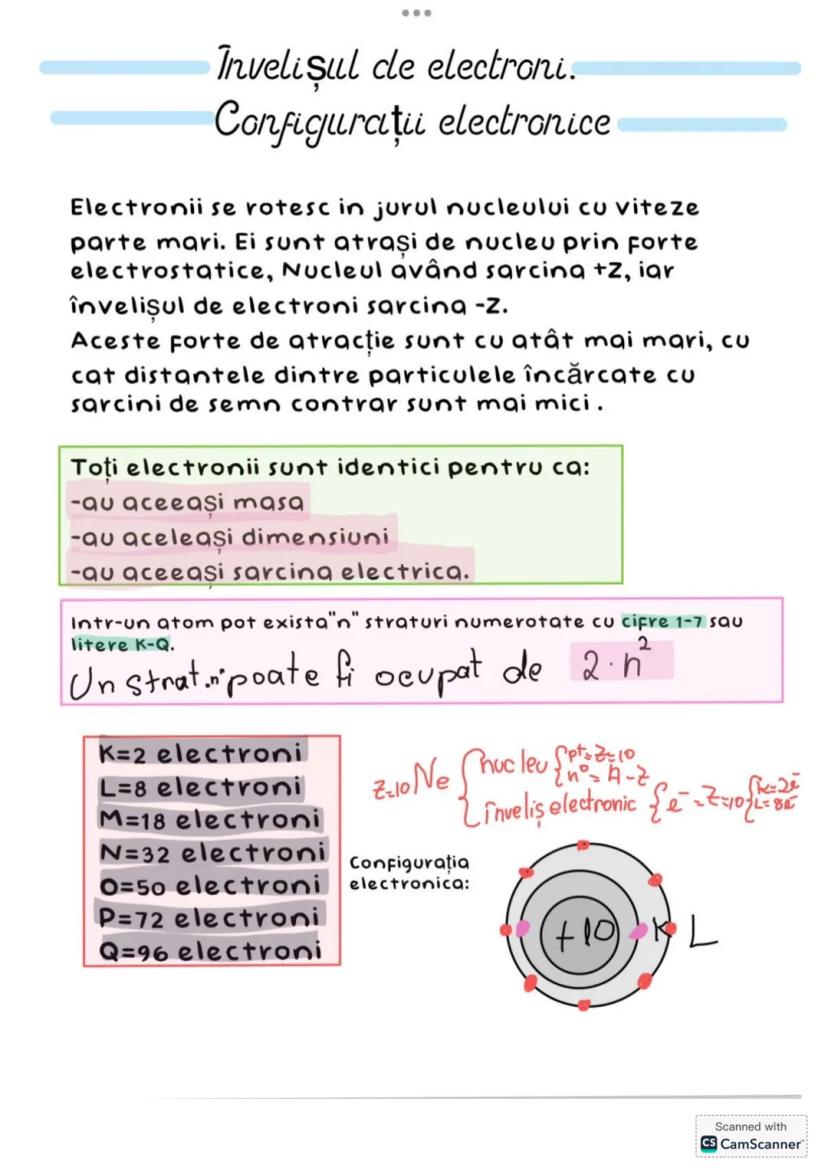 Învelișul de electroni.
Configurații electronice
Electronii se rotesc in jurul nucleului cu viteze
parte mari. Ei sunt atrași de nucleu prin forte
electrostatice, Nucleul având sarcina +Z, iar
învelișul de electroni sarcina -Z.
Aceste forte de atracție sunt cu atât mai mari, cu
cat distantele dintre particulele încărcate cu
sarcini de semn contrar sunt mai mici.
Toți electronii sunt identici pentru ca:
-au aceeași masa
-au aceleași dimensiuni
-au aceeași sarcina electrica.
Intr-un atom pot exista"n" straturi numerotate cu cifre 1-7 sau
litere K-Q.
Un strat "n" poate fi ocupat de 2·n²
K=2 electroni
L=8 electroni
M=18 electroni
N=32 electroni
O=50 electroni
P=72 electroni
Q=96 electroni
Z=10 Ne { nucleu { p+=Z=10
n°=A-Z
înveliș electronic { e⁻=Z=10 { K=2e⁻
L=8e⁻
Configurația
electronica:
+10 K L
Scanned with
CS CamScanner